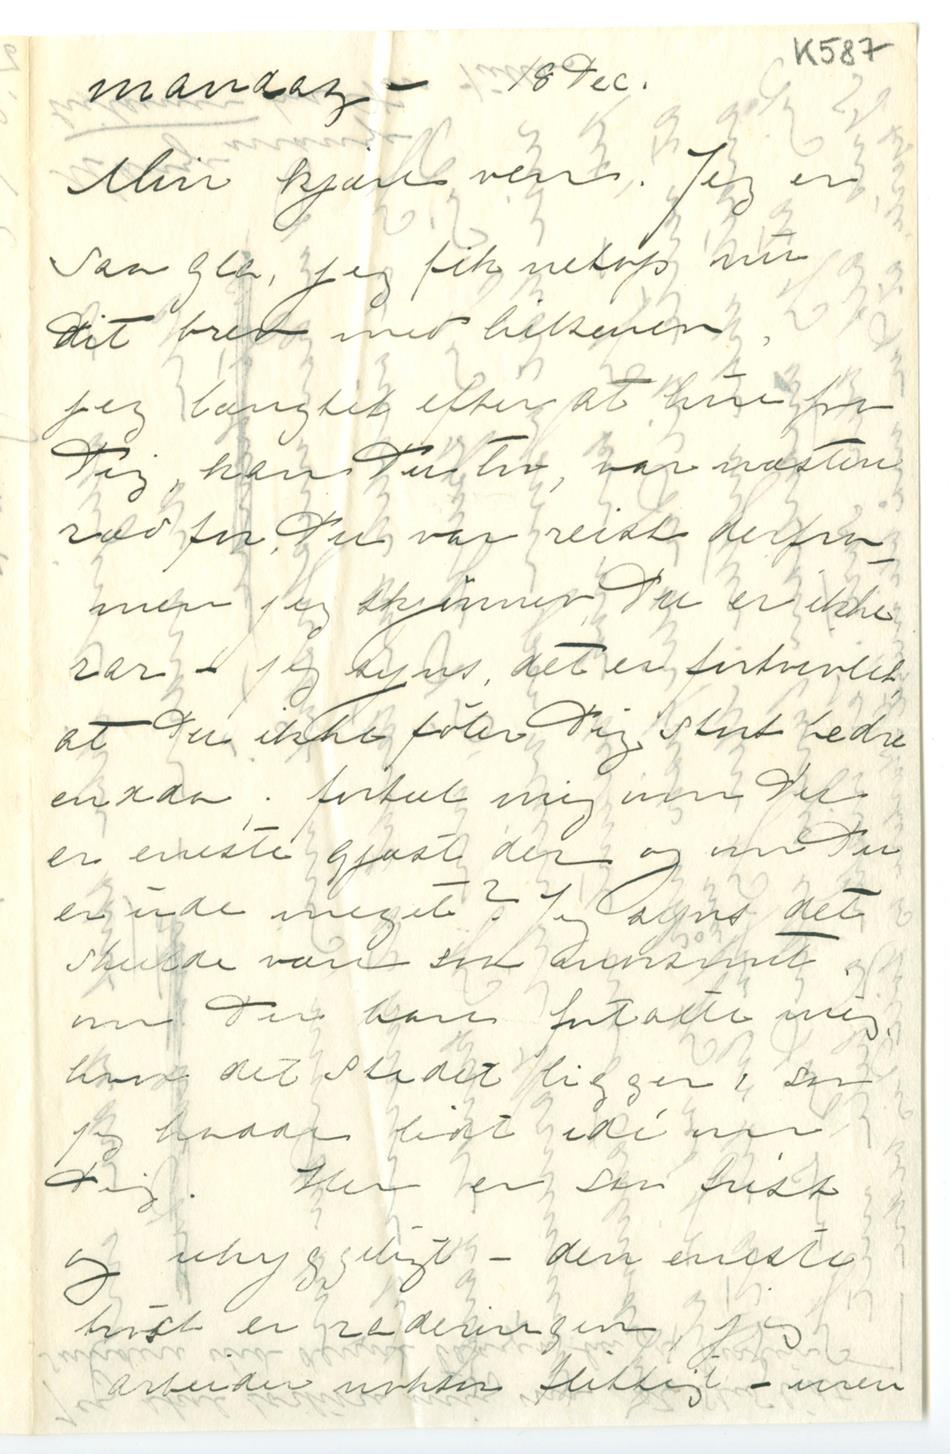 K587
mandag – 18 Dec.
Min kjære ven. Jeg er
saa gla, jeg fik netop nu
dit brev med billeven.
jeg længtet efter at høre fra
Dig, kan Du tro, var næsten
ræd for, Du var reist derfra –
men jeg skjønner Du er ikke
rar – jeg syns, det er fortvivlet,
at Du ikke føler Dig stort bedre
endda. fortæl mig om Du
er eneste gjæst der og om Du
er ude meget? Jeg syns det
skulde være saa
om Du kan fortælle mig,
hvor det stedet ligger, saa
jeg havde lidt idé om
Dig. Her er saa trist
og uhyggeligt – den eneste
trøst er raderingen, jeg
arbeider nokså flittigt – men